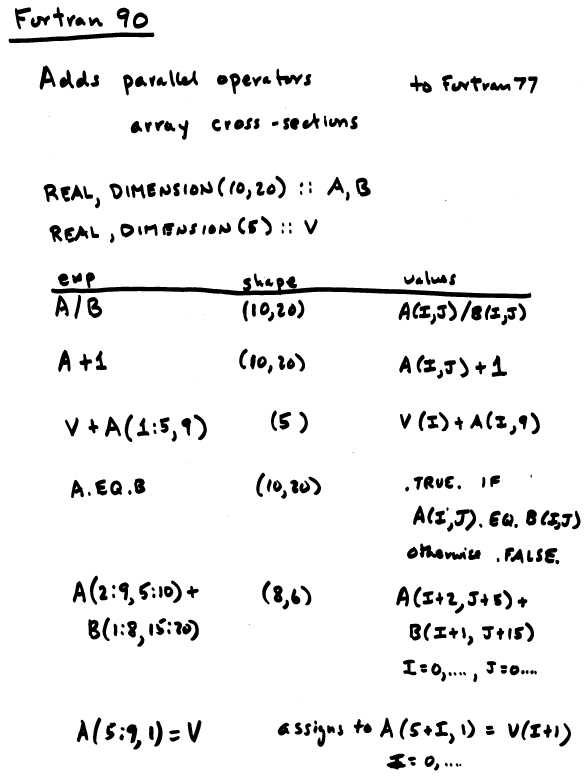 Fortran 90
Adds parallel operators to Fortran 77
array cross-sections
REAL, DIMENSION(10,20) :: A, B
REAL, DIMENSION(5) :: V
exp shape values
A/B (10,20) A(I,J)/B(I,J)
A+1 (10,20) A(I,J)+1
V+A(1:5,9) (5) V(I)+A(I,9)
A.EQ.B (10,20) .TRUE. IF
A(I,J).EQ.B(I,J)
otherwise .FALSE.
A(2:9,5:10)+ (8,6) A(I+2,J+5)+
B(1:8,15:20) B(I+1, J+15)
I=0,...., J=0....
A(5:9,1)=V assigns to A(5+I,1) = V(I+1)
I=0,....